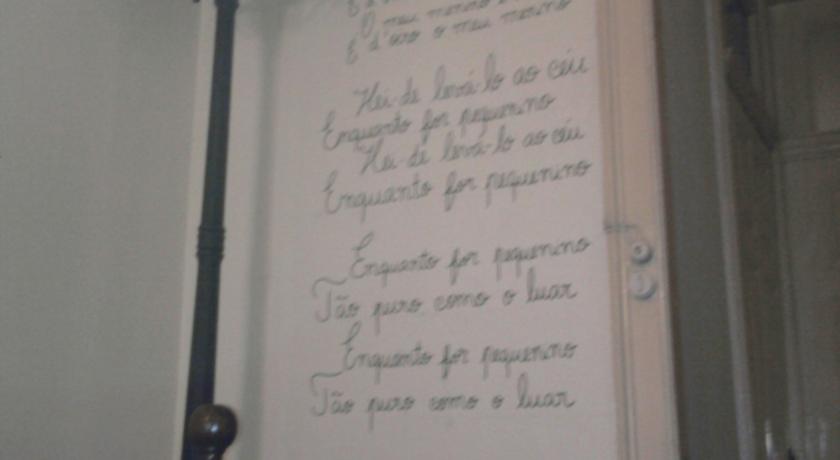 O meu menino
É d'oiro o meu menino
Hei-de levá-lo ao céu
Enquanto for pequenino
Hei-de levá-lo ao céu
Enquanto for pequenino
Enquanto for pequenino
Tão puro como o luar
Enquanto for pequenino
Tão puro como o luar